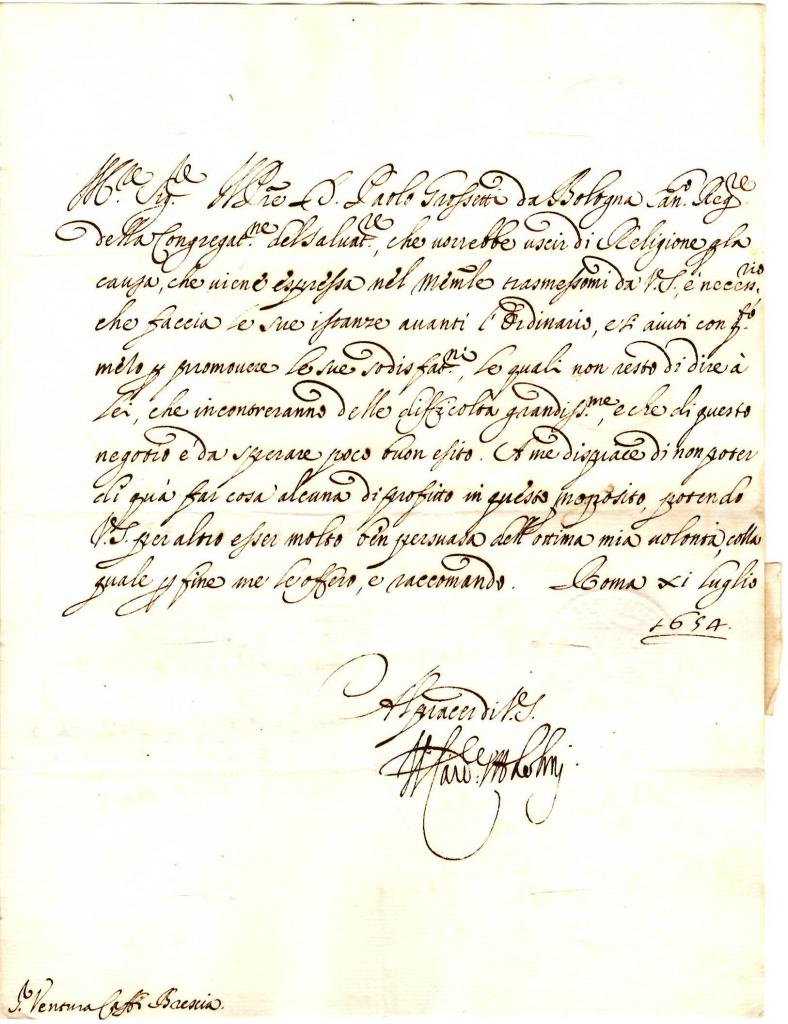 M.re Sig.re Il Pre D. Paolo Grossetti da Bologna Can.o Reg.re
della Congregat.ne del Salvat.re, che vorrebbe uscir di Religione p la
causa, che viene espressa nel Memle trasmessomi da V.S., è necess.rio
che faccia le sue istanze avanti l'Ordinario, e si aiuti con
p promovere le sue sodisfat.ni, le quali non resto di dire à
lei, che incontreranno delle difficoltà grandiss.me, e che di questo
negotio è da sperare poco buon esito. A me dispiace di non poter
di quà far cosa alcuna di profitto in questo proposito, potendo
V.S. per altro esser molto ben persuasa dell'ottima mia volontà, colla
quale p fine me le offero, e raccomando. Roma xi luglio
1654.
Al piacer di V.S.
Il Card.le
S.r Ventura Brescia.